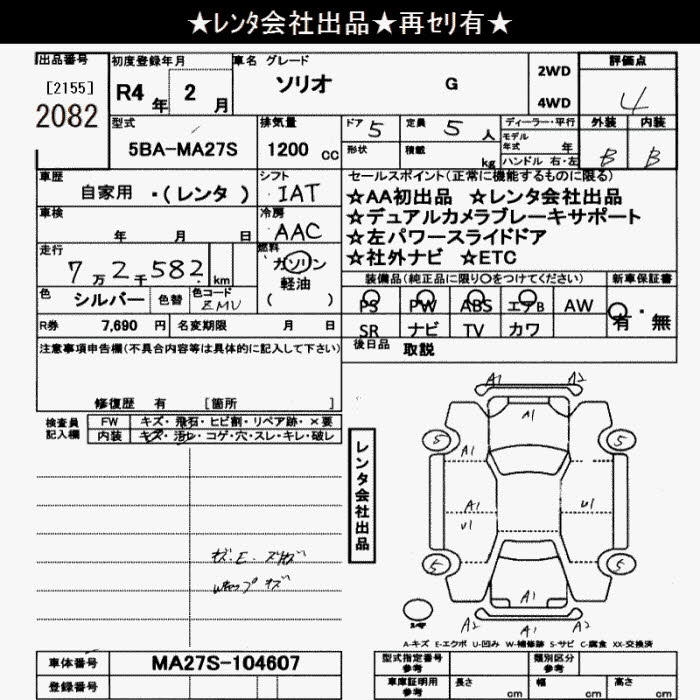 ★レンタ会社出品★再セリ有★
出品番号
[2155]
2082
初度登録年月
R4 年 2 月
車名 グレード
ソリオ G
2WD
4WD
評価点
4
型式
5BA-MA27S
排気量
1200 cc
ドア 5
形状
定員 5 人
積載 kg
ディーラー・平行
モデル年式 年
ハンドル 右・左
外装 内装
B B
車歴
自家用 ・(レンタ )
シフト
IAT
車検
年 月 日
冷房
AAC
走行
7万2千582. km
燃料
ガソリン
軽油
( )
色
シルバー
色替
色コード
ZMU
R券 7,690 円
名変期限 月 日
セールスポイント(正常に機能するものに限る)
☆AA初出品 ☆レンタ会社出品
☆デュアルカメラブレーキサポート
☆左パワースライドドア
☆社外ナビ ☆ETC
装備品(純正品に限り○をつけてください)
新車保証書
PS PW ABS エアB AW
SR ナビ TV カワ
有・無
後日品 取説
注意事項申告欄(不具合内容等は具体的に記入して下さい)
修復歴 有 [箇所 ]
検査員記入欄
FW キズ・飛石・ヒビ割・リペア跡・×要
内装 キズ・汚レ・コゲ・穴・スレ・キレ・破レ
キズ・E・
キズ
レンタ会社出品
A1 A2
A1
5 5
A1
A1 U1
U1
5 5
A1
A2 A1 A2
A-キズ E-エクボ U-凹み W-補修跡 S-サビ C-腐食 XX-交換済
車体番号 MA27S-104607
登録番号
型式指定番号 参考
類別区分 参考
車庫証明用 参考
長さ cm
幅 cm
高さ cm